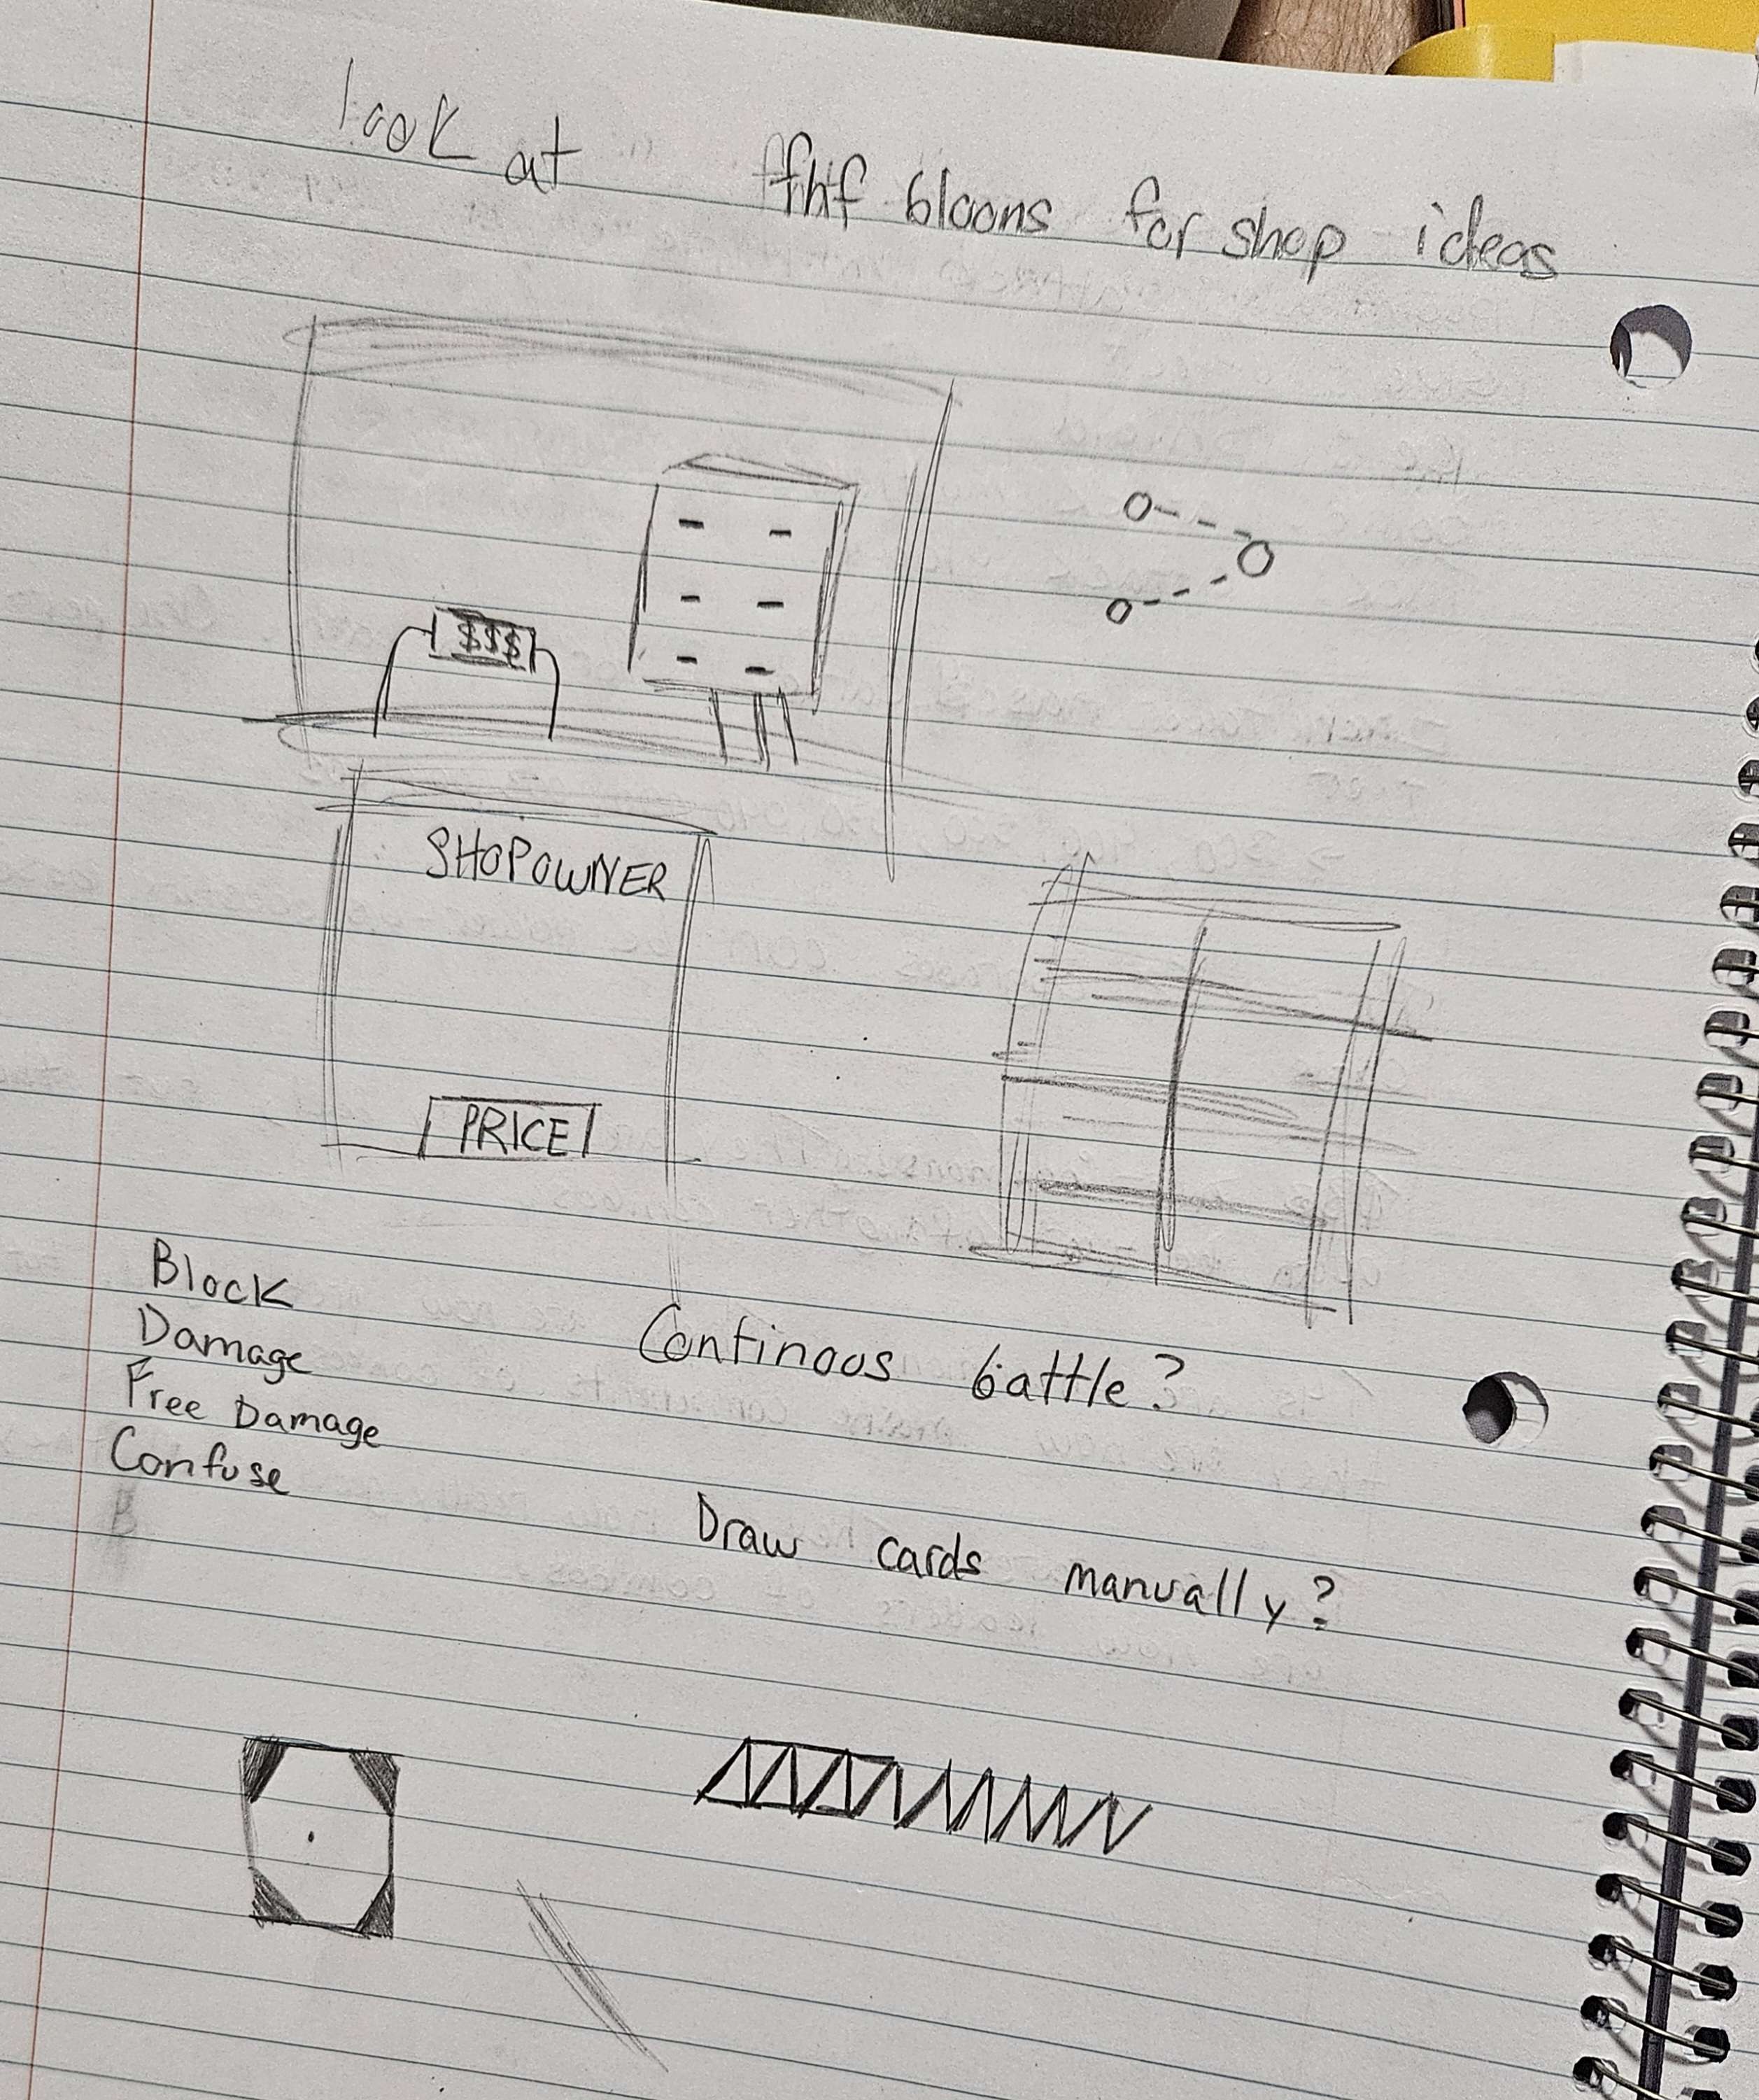 look at fnf bloons for shop ideas
$$$
SHOPOWNER
PRICE
Block
Damage
Free Damage
Confuse
B
Continous battle?
Draw cards manually?